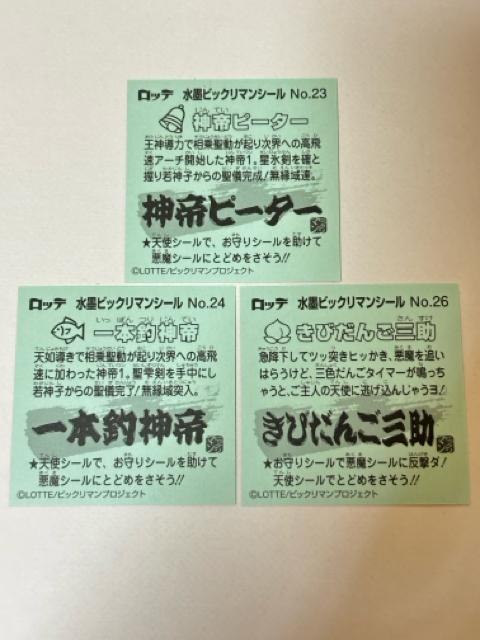 ロッテ 水墨ビックリマンシール No.23
神帝ピーター
王神導力で相乗聖動が起り次界への高飛
速アーチ開始した神帝1。星氷剣を確と
握り若神子からの聖儀完成!無縁域達。
神帝ピーター
★天使シールで、お守りシールを助けて
悪魔シールにとどめをさそう!!
©LOTTE/ビックリマンプロジェクト
ロッテ 水墨ビックリマンシール No.24
いっぽんつりしんてい
17 一本釣神帝
天如導きで相乗聖動が起り次界への高飛
速に加わった神帝1。聖雫剣を手中にし
若神子からの聖儀完了!無縁域突入。
一本釣神帝
★天使シールで、お守りシールを助けて
悪魔シールにとどめをさそう!!
©LOTTE/ビックリマンプロジェクト
ロッテ 水墨ビックリマンシール No.26
さんすけ
きびだんご三助
急降下してツッ突きヒッかき、悪魔を追い
はらうけど、三色だんごタイマーが鳴っち
ゃうと、ご主人の天使に逃げ込んじゃうヨ!
きびだんご三助
★お守りシールで悪魔シールに反撃ダ!
天使シールでとどめをさそう!!
©LOTTE/ビックリマンプロジェクト